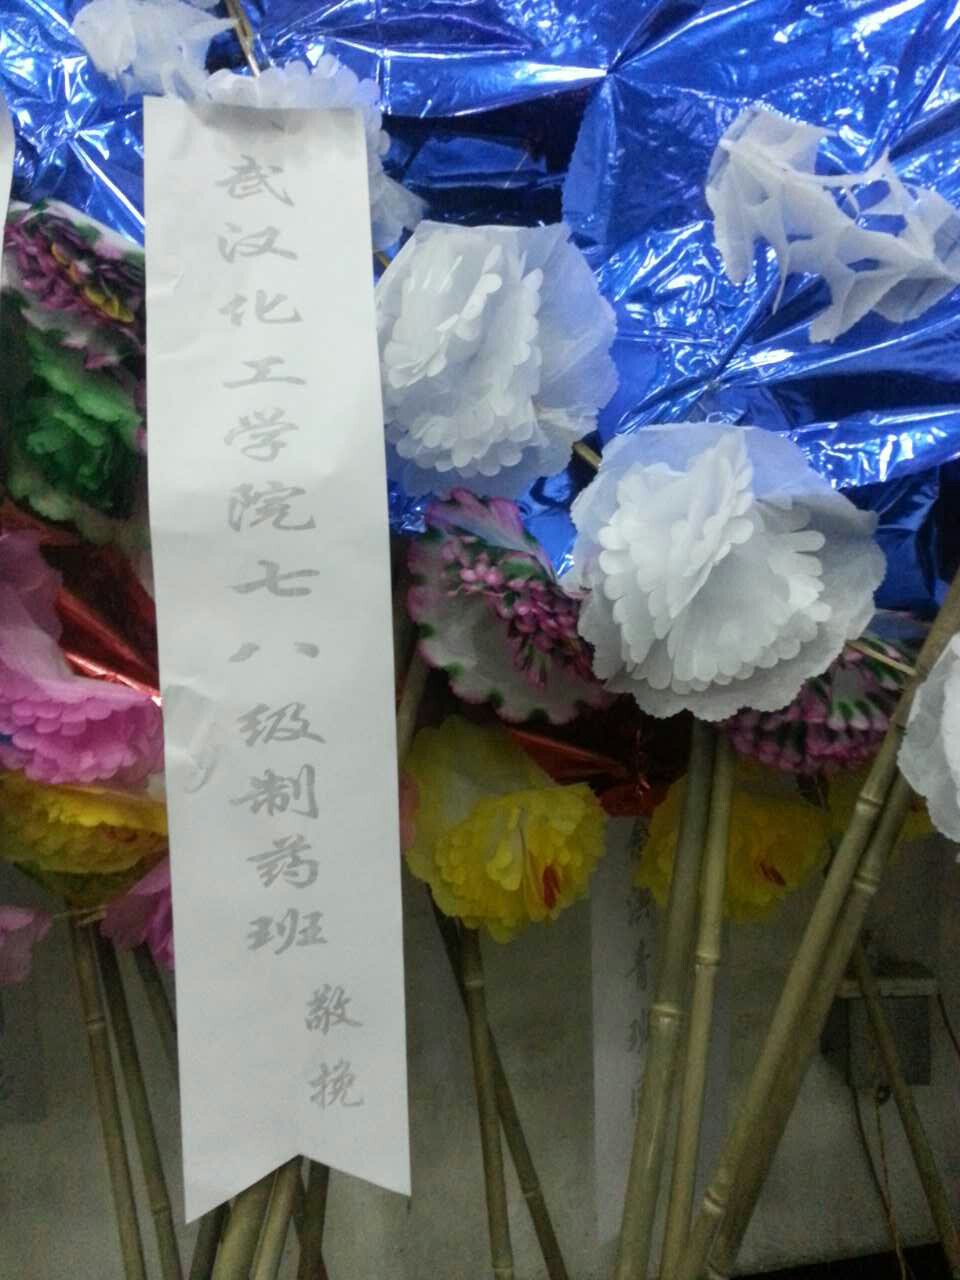 武汉化工学院七八级制药班
敬挽